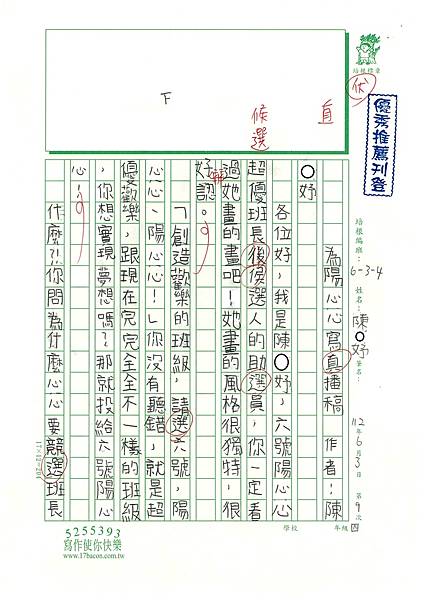 培根標章
優秀推薦刊登
優
直
候選
下
培根編班:6-3-4 姓名:陳○妤 筆名:
112年6月3日 第9次
學校 年級 四
為陽心心寫真播稿 作者:陳
○妤
各位好,我是陳○妤,六號陽心心
超優班長後侯選人的助選員,你一定看
過她畫的畫吧!她畫的風格很獨特,很
好認。
「創造歡樂的班級,請選六號,陽
心心、陽心心!」你沒有聽錯,就是超
優歡樂,跟現在完完全全不一樣的班級
,你想實現夢想嗎?那就投給六號陽心
心!
什麼?!你問為什麼心心要競選班長
17×12=204
5255393
寫作使你快樂
www.17bacon.com.tw